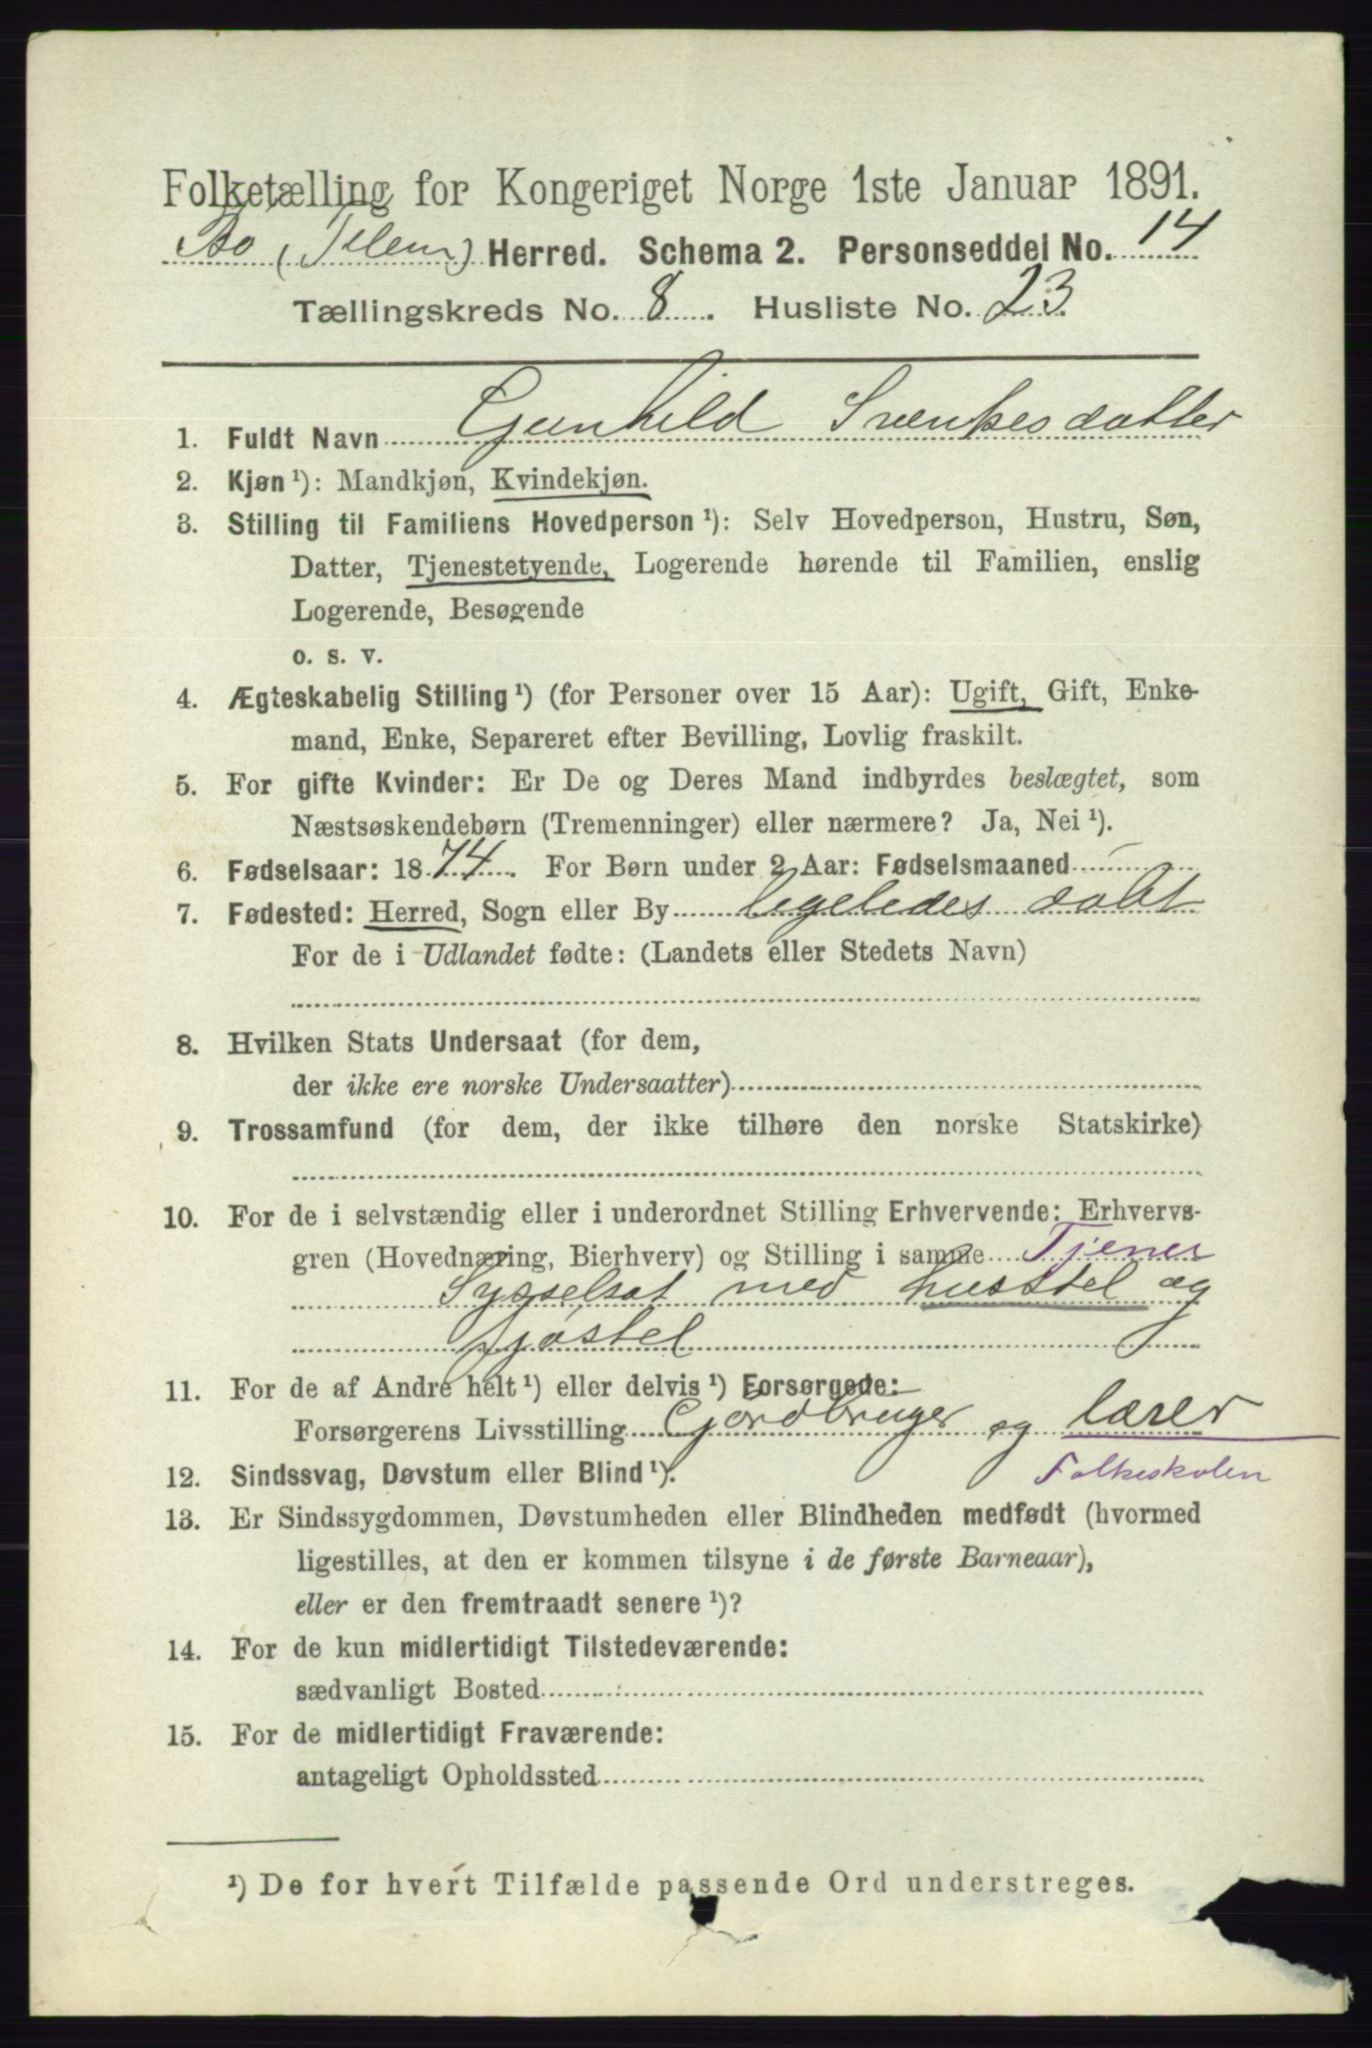 Folketælling for Kongeriget Norge 1ste Januar 1891.
Bø (Telem) Herred. Schema 2. Personseddel No. 14
Tællingskreds No. 8. Husliste No. 23
1. Fuldt Navn Gunhild Svenkesdatter
2. Kjøn ¹): Mandkjøn, Kvindekjøn.
3. Stilling til Familiens Hovedperson ¹): Selv Hovedperson, Hustru, Søn,
Datter, Tjenestetyende, Logerende hørende til Familien, enslig
Logerende, Besøgende
o. s. v.
4. Ægteskabelig Stilling ¹) (for Personer over 15 Aar): Ugift, Gift, Enke-
mand, Enke, Separeret efter Bevilling, Lovlig fraskilt.
5. For gifte Kvinder: Er De og Deres Mand indbyrdes beslægtet, som
Næstsøskendebørn (Tremenninger) eller nærmere? Ja, Nei ¹).
6. Fødselsaar: 1874. For Børn under 2 Aar: Fødselsmaaned
7. Fødested: Herred, Sogn eller By ligeledes
For de i Udlandet fødte: (Landets eller Stedets Navn)
8. Hvilken Stats Undersaat (for dem,
der ikke ere norske Undersaatter)
9. Trossamfund (for dem, der ikke tilhøre den norske Statskirke)
10. For de i selvstændig eller i underordnet Stilling Erhvervende: Erhvervs-
gren (Hovednæring, Bierhverv) og Stilling i samme Tjener
Sysselsat med husstel og
fjøstel
11. For de af Andre helt ¹) eller delvis ¹) Forsørgede:
Forsørgerens Livsstilling Gjordbruger og lærer
12. Sindssvag, Døvstum eller Blind ¹). Folkeskolen
13. Er Sindssygdommen, Døvstumheden eller Blindheden medfødt (hvormed
ligestilles, at den er kommen tilsyne i de første Barneaar),
eller er den fremtraadt senere ¹)?
14. For de kun midlertidigt Tilstedeværende:
sædvanligt Bosted
15. For de midlertidigt Fraværende:
antageligt Opholdssted
¹) De for hvert Tilfælde passende Ord understreges.